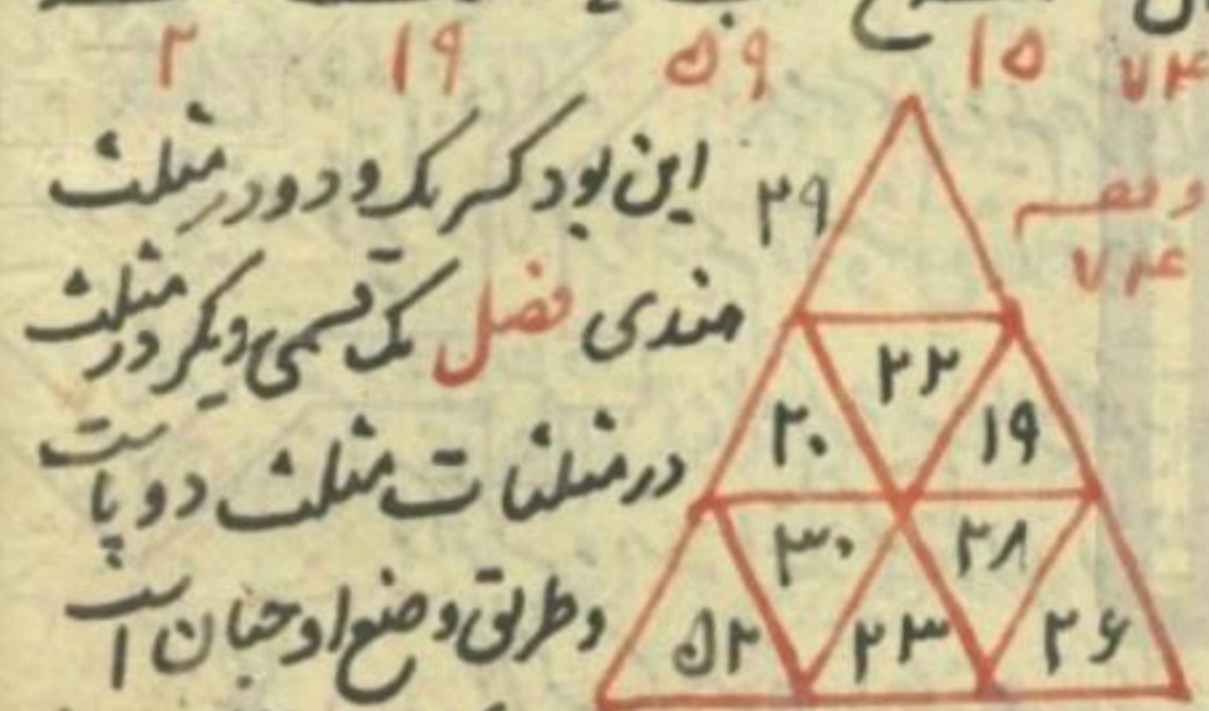 ۷۴ ۱۵ ۵۹ ۱۹ ۲
وفصـ ۷۴
۲۹
این بود کسر یک و دو در مثلث
هندی فصل یک قسمی دیگر در مثلث
در مثلثات مثلث دو پاست
و طریق وضع او چنان است
۲۲
۲۰ ۱۹
۳۰ ۲۸
۵۲ ۲۳ ۲۶